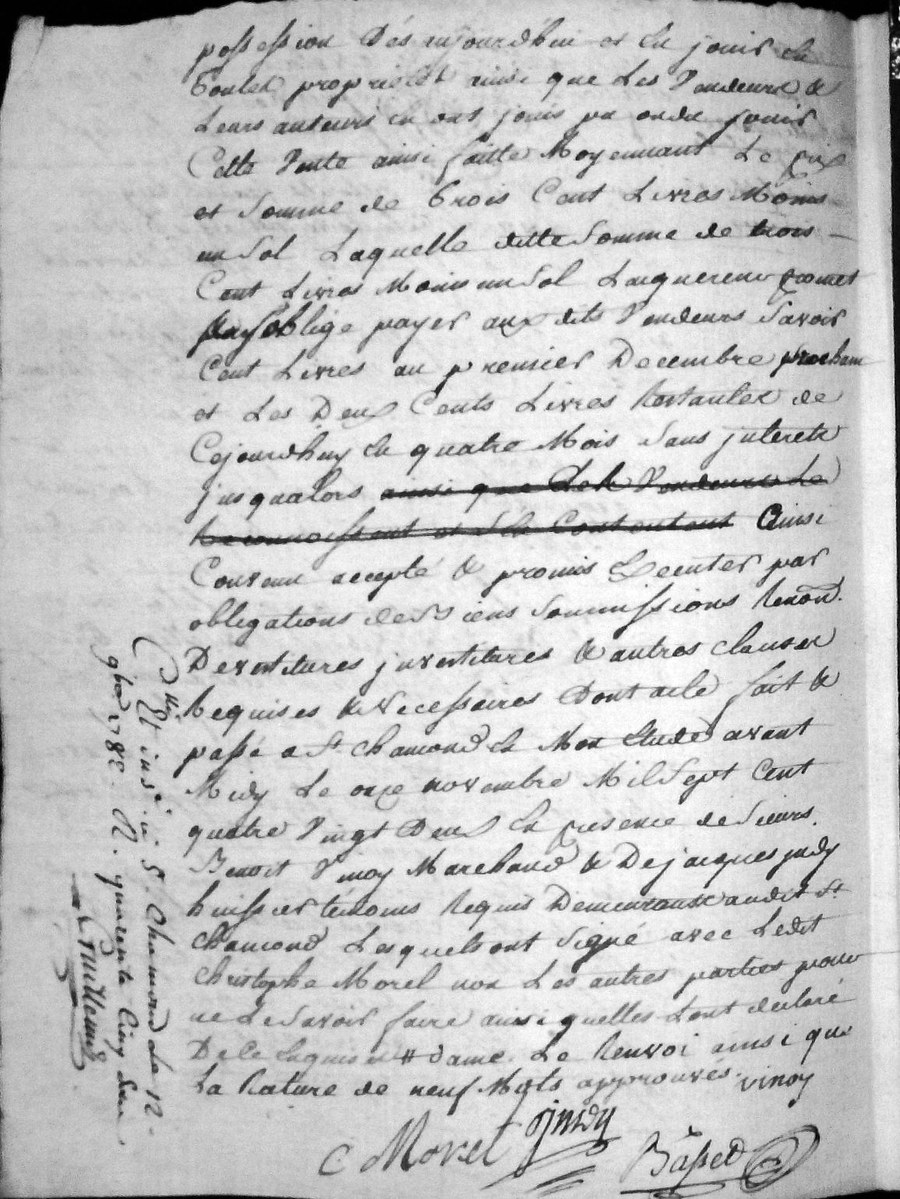 possession dès aujourdhui et en jouir en
toutes proprietés ainsi que Les Vendeurs &
Leurs auteurs en ont jouis pu ou du jouir
Cette Vente ainsi faitte Moyennant Le prix
et Somme de trois Cent Livres Moins
un Sol Laquelle ditte Somme de trois
Cent Livres Moins un Sol Laquereur promet
oblige payer aux dits Vendeurs Savoir
Cent Livres au premier Decembre prochain
et Les Deux Cents Livres Restantes de
Cejourdhuy en quatre Mois Sans interets
jusqualors ainsi que Les Vendeurs Le
Reconnoissent et S'en Contentent ainsi
Convenu accepté & promis Executer par
obligations de Biens Soumissions Renon.
Devestitures investitures & autres clauses
Requises & Necessaires Dont acte fait &
passé a St chamond En Mon Etude avant
Midy Le onze novembre Mil Sept Cent
quatre Vingt Deux En presence de Sieurs.
Benoit Vinoy Marchand & De jacques judy
huissier témoins Requis Demeurants audit St
chamond Lesquels ont Signé avec Ledit
christophe Morel non Les autres parties pour
ne Le Savoir faire ainsi quelles Lont declaré
De ce Enquis # dame. Le Renvoi ainsi que
La Rature de neuf Mots approuvés. vinoy
C Morel judy
Bajset
Cllé Et insé. à St. Chamond Le 12.
gbre 1782. R. quarante Cinq Sous